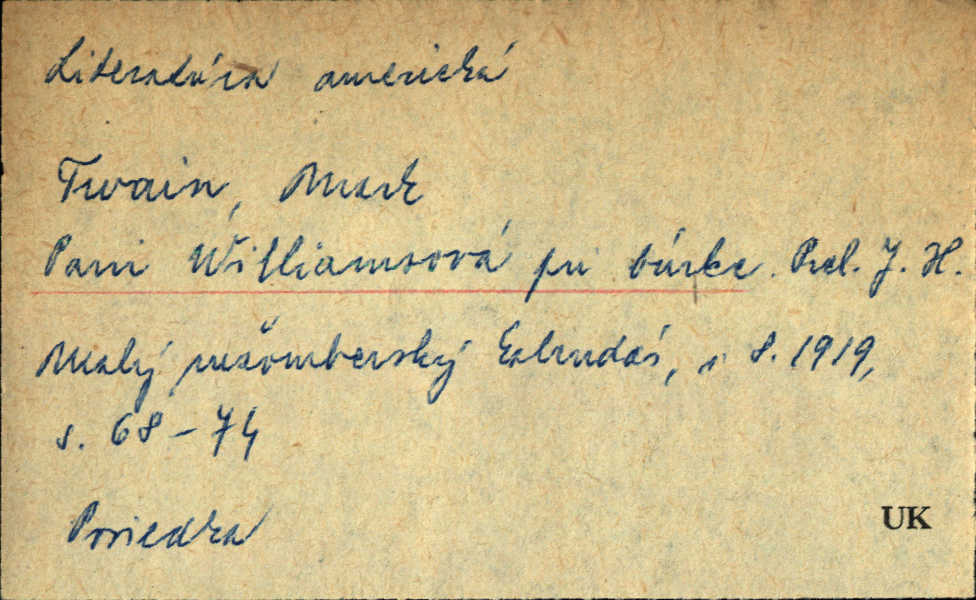 Literatúra americká
Twain, Mark
Pani Williamsová pri búrke. Prel. J. H.
Malý ružomberský kalendár, r. 1919,
s. 68-74
Poviedka
UK